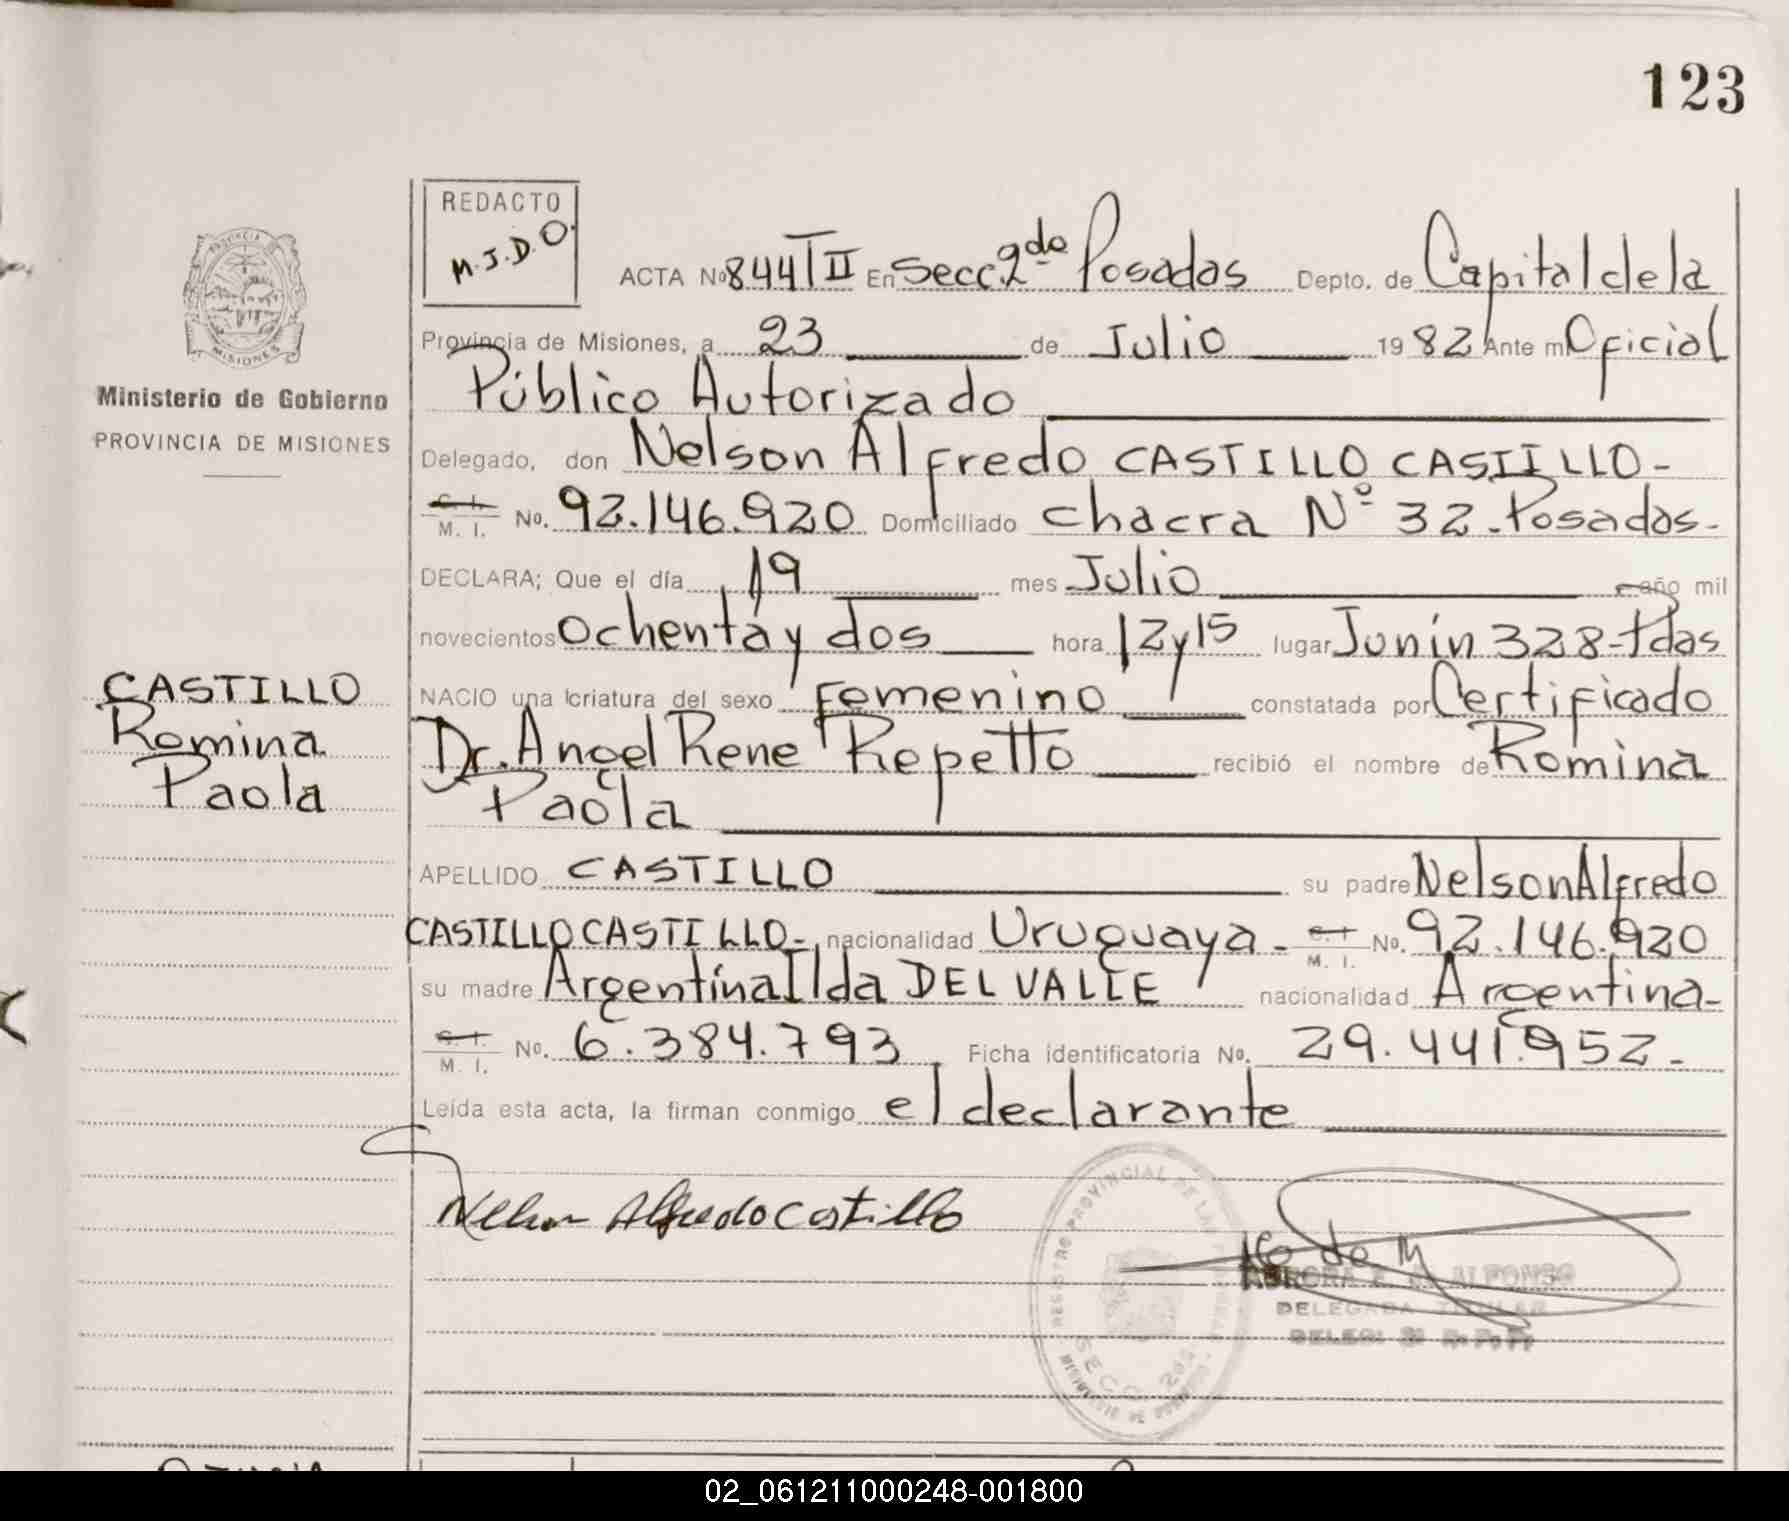 123
REDACTO
M.J.D.O.
ACTA Nº 844 T II En Secc. 2da Posadas Depto. de Capital de la
Provincia de Misiones, a 23 de Julio 1982 Ante mí Oficial
Público Autorizado
Delegado, don Nelson Alfredo CASTILLO CASTILLO-
C. I.
M. I. No. 92.146.920 Domiciliado chacra Nº 32-Posadas-
DECLARA; Que el día 19 mes Julio año mil
novecientos Ochenta y dos hora 12 y 15 lugar Junín 328-Pdas
NACIO una criatura del sexo Femenino constatada por Certificado
Dr. Angel Rene Repetto recibió el nombre de Romina
Paola
APELLIDO CASTILLO su padre Nelson Alfredo
CASTILLO CASTILLO- nacionalidad Uruguaya- C. I.
M. I. No. 92.146.920
su madre Argentina Ilda DEL VALLE nacionalidad Argentina-
C. I.
M. I. No. 6.384.793 Ficha identificatoria No. 29.441.952-
Leída esta acta, la firman conmigo el declarante
Nelson Alfredo Castillo
REGISTRO PROVINCIAL DE LAS
SECC. 2da
ALFONSO
DELEGADA TITULAR
PROVINCIA
MISIONES
Ministerio de Gobierno
PROVINCIA DE MISIONES
CASTILLO
Romina
Paola
02_061211000248-001800